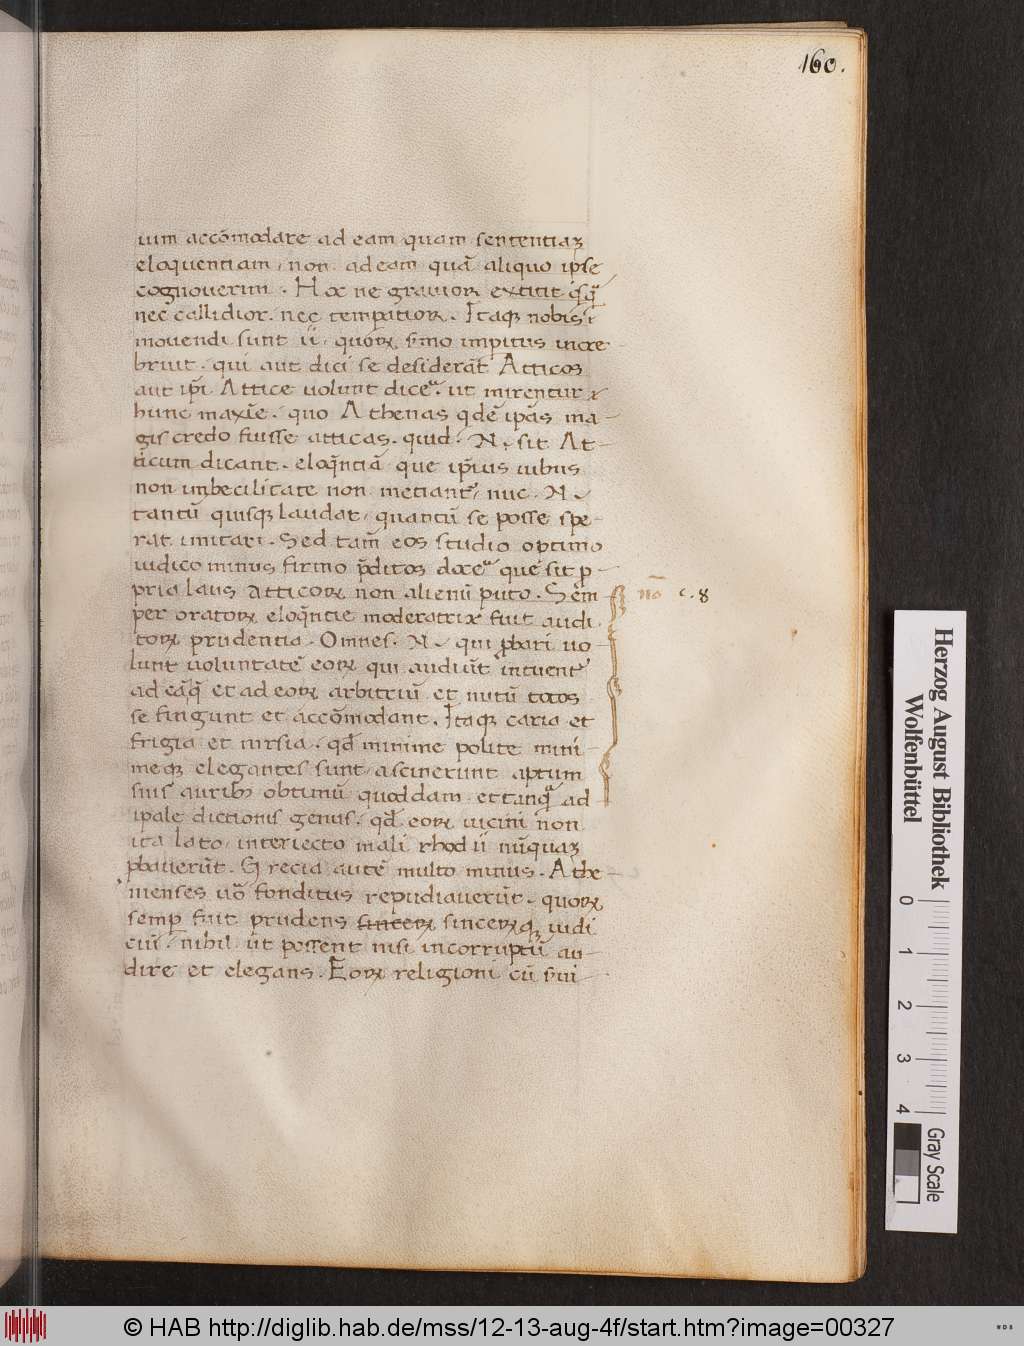 160.
uim accōmodare ad eam quam sententiaꝫ
eloquentiam, non ad eam quā aliquo ipse
cognouerim. Hoc ne grauior extitit q̄sq̄
nec callidior. nec temperatior. Itaqꝫ nobis
mouendi sunt ii, quoꝝ s̄mo imperitus incre
bruit. qui aut dici se desiderāt Atticos
aut ip̄i Attice uolunt dicere. ut mirentur
hunc maxīe. quo Athenas q̄dē ip̄as ma
gis credo fuisse atticas. quid. N. sit At
ticum dicant. eloq̄ntiā que ip̄ius uibus
non imbecilitate non metiant, nuc. N
tantū quisqꝫ laudat, quantū se posse spe
rat imitari. Sed tam̄ eos studio optimo
iudico minus firmo p̄ditos docere que sit p
pria laus atticoꝝ non alienū puto. Sem̄
per oratoꝝ eloq̄ntie moderatrix fuit audi
toꝝ prudentia. Omnes. N. qui ꝓbari uo
lunt uoluntatē eoꝝ qui audiūt intuent
ad eāq̄ et ad eoꝝ arbitriū et nutū totos
se fingunt et accōmodant. Itaqꝫ caria et
frigia et mirsia. qd̄ minime polite mini
meqꝫ elegantes sunt, asciuerunt aptum
suis auribꝫ obtimū quoddam et tanq̄ ad
ipale dictionis genus. qd̄ eoꝝ uicini non
ita lato interiecto mali rhodii nūquaꝫ
ꝓbauerūt. Grecia autē multo minus. Athe
nienses uō funditus repudiauerūt. quoꝝ
semꝑ fuit prudens sinceꝝ sinceꝝqꝫ iudi
ciū. nihil ut possent nisi incorruptū au
dire et elegans. Eoꝝ religioni cū s̄ui
nō c. 8
Herzog August Bibliothek
Wolfenbüttel
0 1 2 3 4
Gray Scale
© HAB http://diglib.hab.de/mss/12-13-aug-4f/start.htm?image=00327